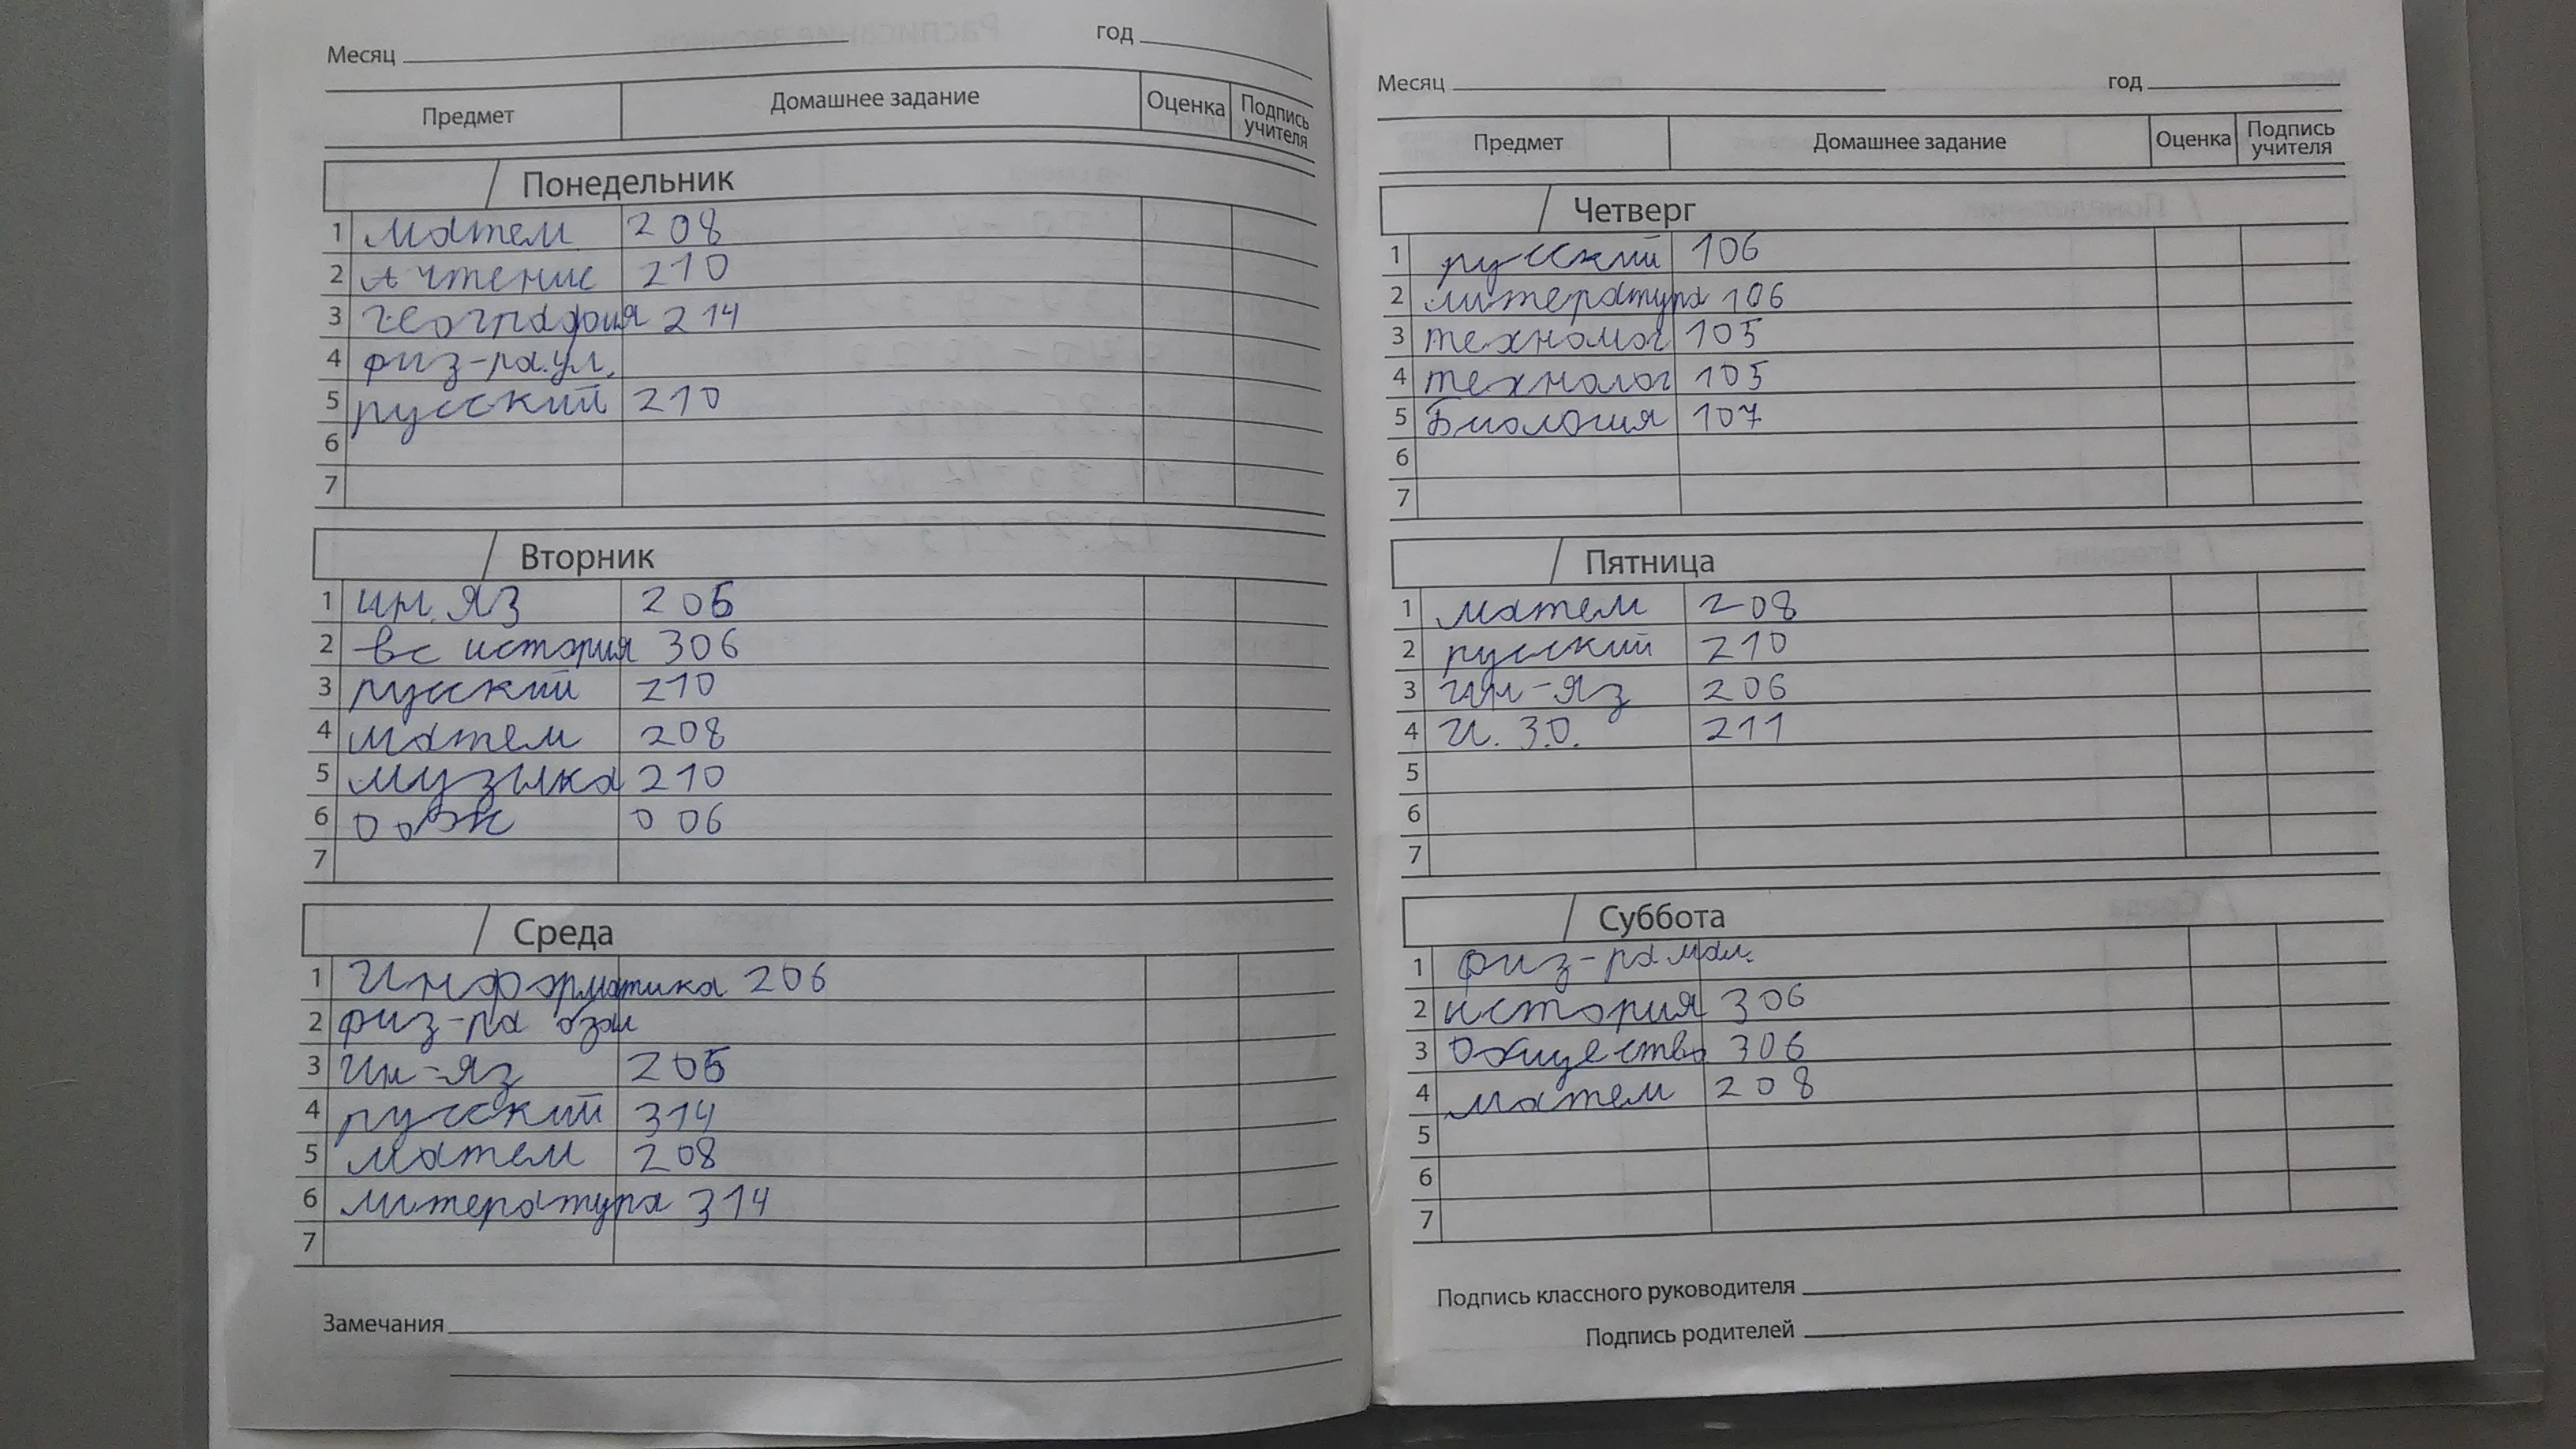 Месяц год
Предмет Домашнее задание Оценка Подпись учителя
Понедельник
1 матем 208
2 чтение 210
3 география 214
4 физ-ра.ул.
5 русский 210
6
7
Вторник
1 ин. яз 205
2 вс история 306
3 русский 210
4 матем 208
5 музыка 210
6 006
7
Среда
1 Информатика 206
2 физ-ра
3 Ин-яз 205
4 русский 314
5 матем 208
6 литература 314
7
Замечания
Месяц год
Предмет Домашнее задание Оценка Подпись учителя
Четверг
1 русский 106
2 литература 106
3 технолог 105
4 технолог 105
5 Биология 107
6
7
Пятница
1 матем 208
2 русский 210
3 ин-яз 206
4 И. З.О. 211
5
6
7
Суббота
1 физ-ра мал.
2 история 306
3 Общество 306
4 матем 208
5
6
7
Подпись классного руководителя
Подпись родителей